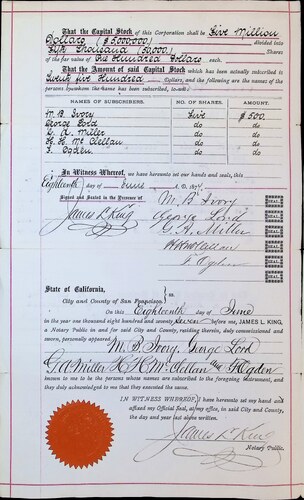 That the Capital Stock of this Corporation shall be Five Million
Dollars ($5000000) divided into
Fifty Thousand (50,000) Shares
of the par value of One Hundred Dollars each.
That the Amount of said Capital Stock which has been actually subscribed is
Twenty five Hundred Dollars, and the following are the names of the
persons by whom the same has been subscribed, to-wit:
NAMES OF SUBSCRIBERS. NO. OF SHARES. AMOUNT.
M B Ivory Five $500.
George Lord do do
G. A. Miller do do
H. H. Mc Clellan do do
F. Ogden do do
In Witness Whereof, we have hereunto set our hands and seals, this
Eighteenth day of June A. D. 187
Signed and Sealed in the Presence of
M. B. Ivory SEAL
James L. King George Lord SEAL
G. A. Miller SEAL
H H McClellan SEAL
F Ogden SEAL
State of California,
City and County of San Francisco ss.
On this Eighteenth day of June
in the year one thousand eight hundred and seventy before me, JAMES L. KING,
a Notary Public in and for said City and County, residing therein, duly commissioned and
sworn, personally appeared
M. B. Ivory, George Lord
G A Miller H H McClellan and F Ogden
known to me to be the persons whose names are subscribed to the foregoing instrument, and
they duly acknowledged to me that they executed the same.
IN WITNESS WHEREOF, I have hereunto set my hand and
affixed my Official Seal, at my office, in said City and County,
the day and year last above written.
James L. King
Notary Public.